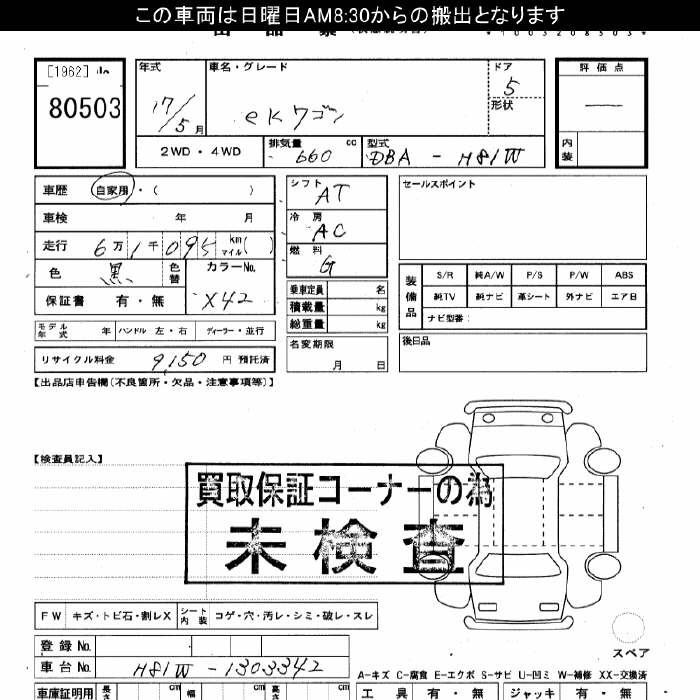 この車両は日曜日AM8:30からの搬出となります
出品票
*1003208503*
[1962]
80503
年式
17/5月
車名・グレード
ekワゴン
ドア
5
形状
評価点
内装
2WD・4WD
排気量
660
cc
型式
DBA-H81W
車歴
自家用・( )
車検 年 月
走行 6万1千095 km マイル( )
色 黒 色替
カラーNo.
X42
保証書 有・無
シフト
AT
冷房
AC
燃料
G
乗車定員 名
積載量 kg
総重量 kg
セールスポイント
装備品
S/R 純A/W P/S P/W ABS
純TV 純ナビ 革シート 外ナビ エアB
ナビ型番:
モデル年式 年 ハンドル 左・右 ディーラー・並行
名変期限
月 日
後日品
リサイクル料金 9,150 円 預託済
【出品店申告欄(不良箇所・欠品・注意事項等)】
【検査員記入】
買取保証コーナーの為
未検査
FW キズ・トビ石・割レX
シート内装 コゲ・穴・汚レ・シミ・破レ・スレ
スペア
登録No.
車台No. H81W-1303342
A-キズ C-腐食 E-エクボ S-サビ U-凹ミ W-補修 XX-交換済
車庫証明用 長さ cm 幅 cm 高さ cm
工具 有・無 ジャッキ 有・無